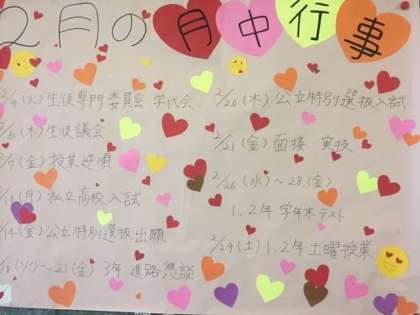 2月の月中行事
2/4(火)生徒専門委員会 学代会
2/6(木)生徒議会
2/7(金)授業逆順
2/10(月)私立高校入試
2/14(金)公立特別選抜出願
2/18(火)~21(金)3年進路懇談
2/20(木)公立特別選抜入試
2/21(金)面接 実技
2/26(水)~28(金)
1.2年 学年末テスト
2/29(土)1.2年土曜授業